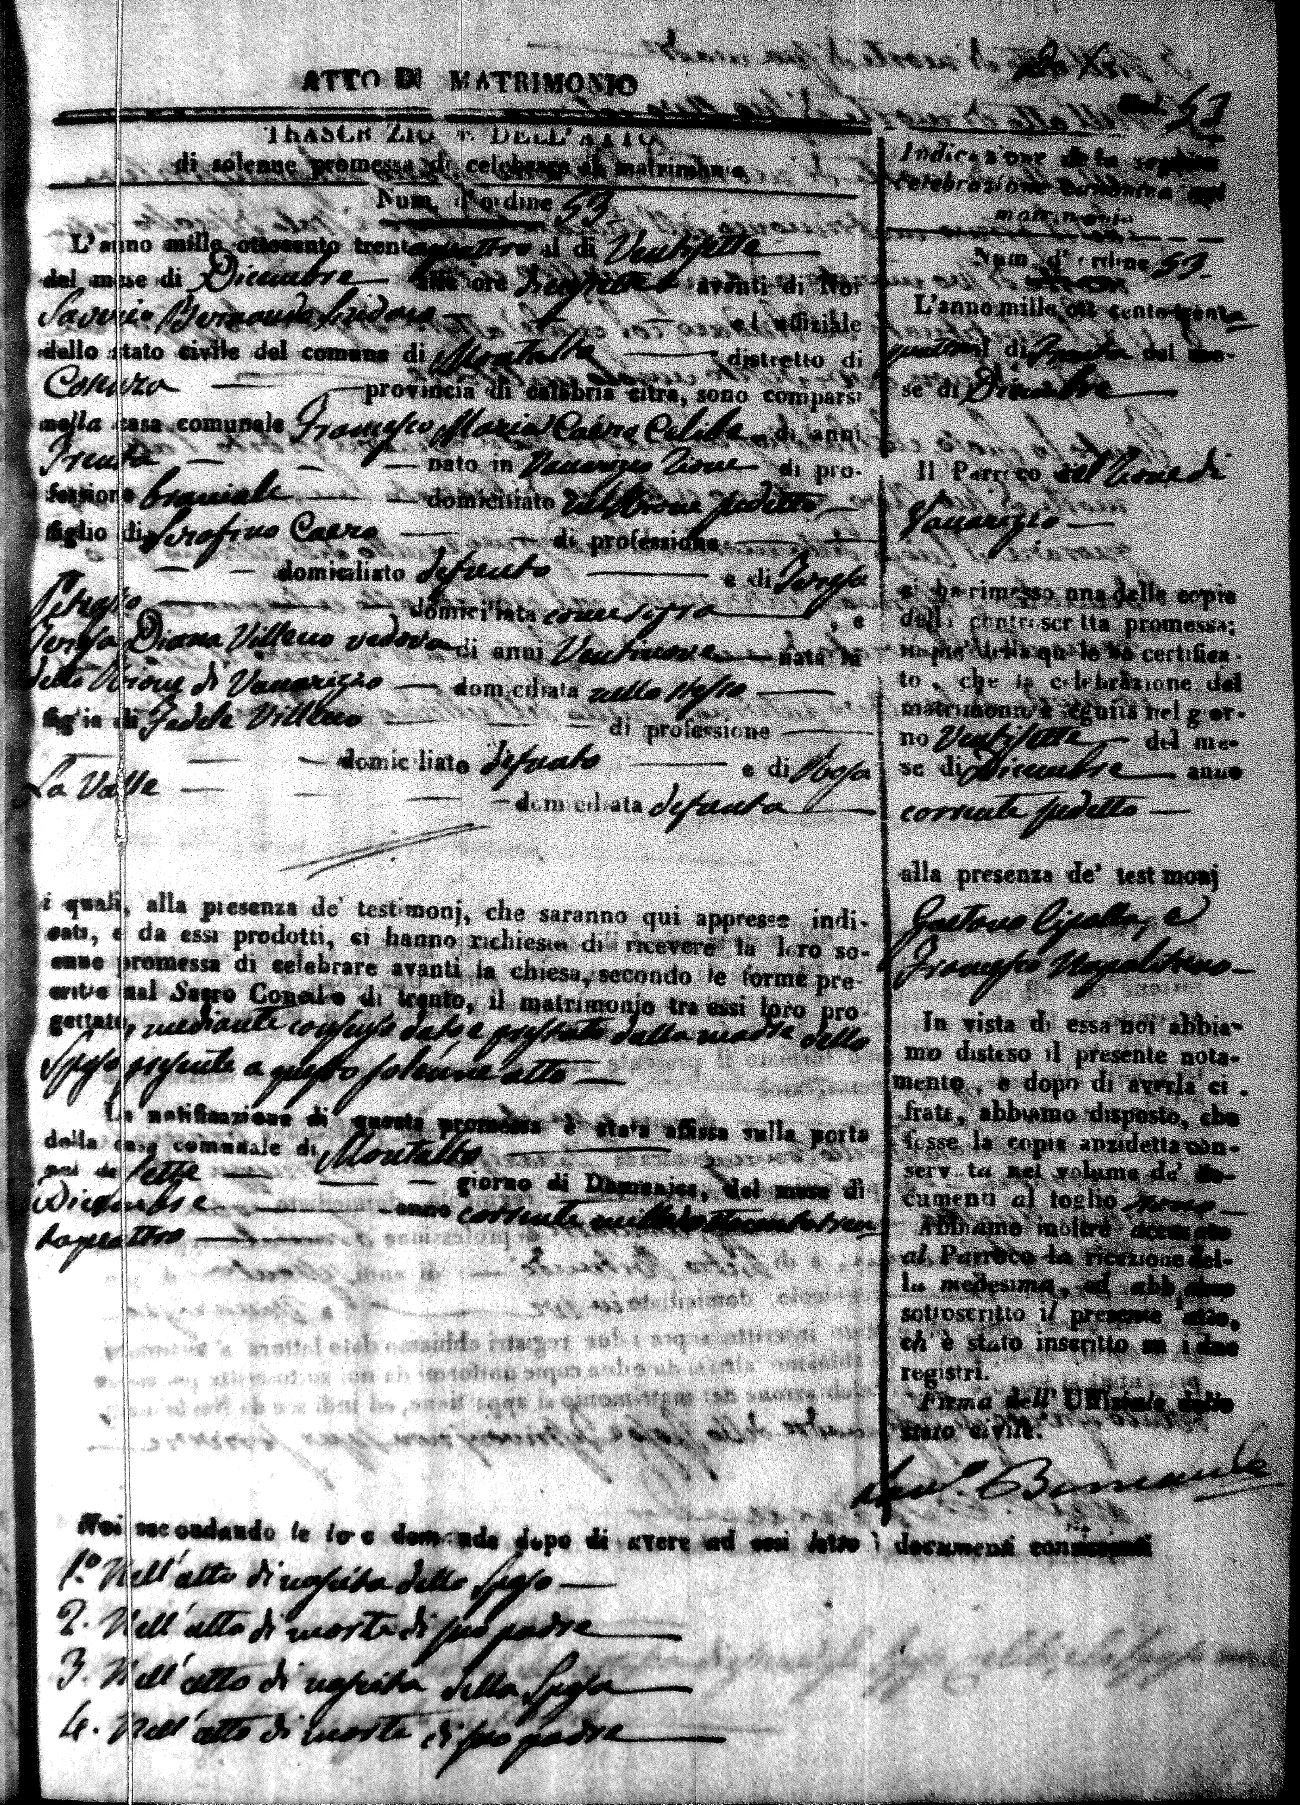 ATTO DI MATRIMONIO
53
TRASCRIZIONE DELL'ATTO
di solenne promessa di celebrare il matrimonio
Num. d'ordine 53
L'anno mille ottocento trentaquattro al di Ventisette
del mese di Dicembre alle ore diecisette avanti di Noi
Saverio Bernaudo Sindaco ed uffiziale
dello stato civile del comune di Montalto distretto di
Cosenza provincia di calabria citra, sono comparsi
nella casa comunale Francesco Maria Caera Celibe di anni
Trenta nato in Vaccarizzo Rione di pro-
fessione bracciale domiciliato nel Rione sudetto
figlio di Serafino Caero di professione
domiciliato defunto e di Teresa
domiciliata come sopra , e
Teresa Diana Villecco vedova di anni Ventinove nata in
detto Rione di Vaccarizzo domiciliata nello stesso
figlia di Fedele Villecco di professione
domiciliato defunto e di Rosa
La Valle domiciliata defunta
i quali, alla presenza de' testimonj, che saranno qui appresso indi-
cati, e da essi prodotti, ci hanno richiesto di ricevere la loro so-
enne promessa di celebrare avanti la chiesa, secondo le forme pre-
critte nal Sagro Concilio di trento, il matrimonio tra essi loro pro
gettato, mediante consenso dato, e prestato dalla madre dello
Sposo presente a questo solenne atto
La notificazione di questa promessa è stata affissa sulla porta
della casa comunale di Montalto
nel di sette giorno di Domenica, del mese di
Dicembre anno corrente mille ottocento tren
taquattro
Noi secondando le loro domande dopo di avere ad essi letto i documenti consistenti
1.º Nell'atto di nascita dello Sposo
2. Nell'atto di morte di suo padre
3. Nell'atto di nascita della Sposa
4. Nell'atto di morte di suo padre
Indicazione della seguita
celebrazione canonica del
matrimonio
Num. d'ordine 53.
L'anno mille ott cento trenta
quattro il di Trenta del me-
se di Dicembre
Il Parroco del Rione di
Vaccarizzo
ci ha rimesso una delle copie
della controscritta promessa;
in piè della quale ha certifica-
to, che la celebrazione del
matrimonio è seguita nel gior-
no Ventisette del me-
se di Dicembre anno
corrente sudetto
alla presenza de' testimonj
Gaetano Cipolla, e
Francesco Napolitano
In vista di essa noi abbia-
mo disteso il presente nota-
mento, e dopo di averla ci-
frata, abbiamo disposto, che
fosse la copia anzidetta con-
servata nel volume de' do-
cumenti al foglio nono
Abbiamo inoltre accusato
al Parroco la ricezione del-
la medesima, ed abbiamo
sottoscritto il presente atto,
ch'è stato inscritto su i due
registri.
Firma dell'Uffiziale dello
stato civile.
Sav.º Bernaudo